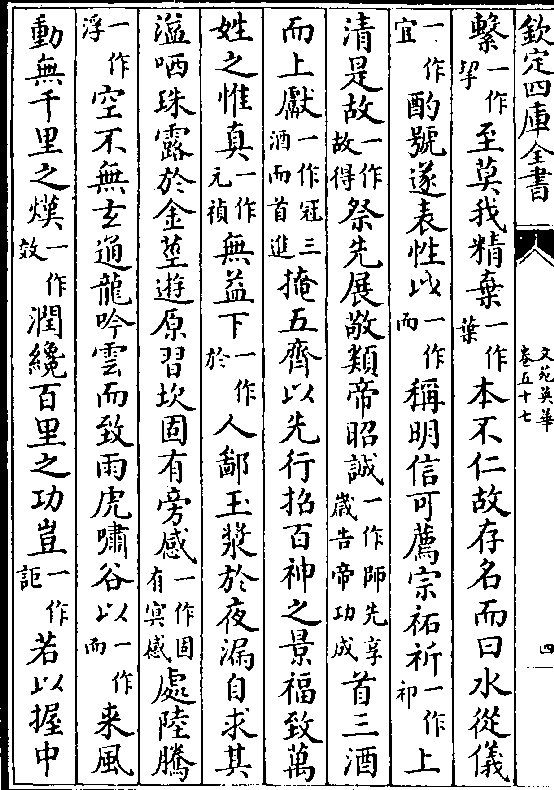 欽定四庫全書
文苑英華
卷五十七
四
繫一作挈至莫我精棄一作葉本不仁故存名而曰水從儀
一作宜酌號遂表性以一作而稱明信可薦宗祏祈一作祁上
清是故一作故得祭先展敬類帝昭誠一作師先享歲告帝功成首三酒
而上獻一作冠三酒而首進掩五齊以先行招百神之景福致萬
姓之惟真一作元禎無益下一作於人鄙玉漿於夜漏自求其
溢哂珠露於金莖遊原習坎固有旁感一作固有㝠感處陸騰
一作浮空不無玄通龍吟雲而致雨虎嘯谷以一作而来風
動無千里之熯一作效潤纔百里之功豈一作詎若以握中